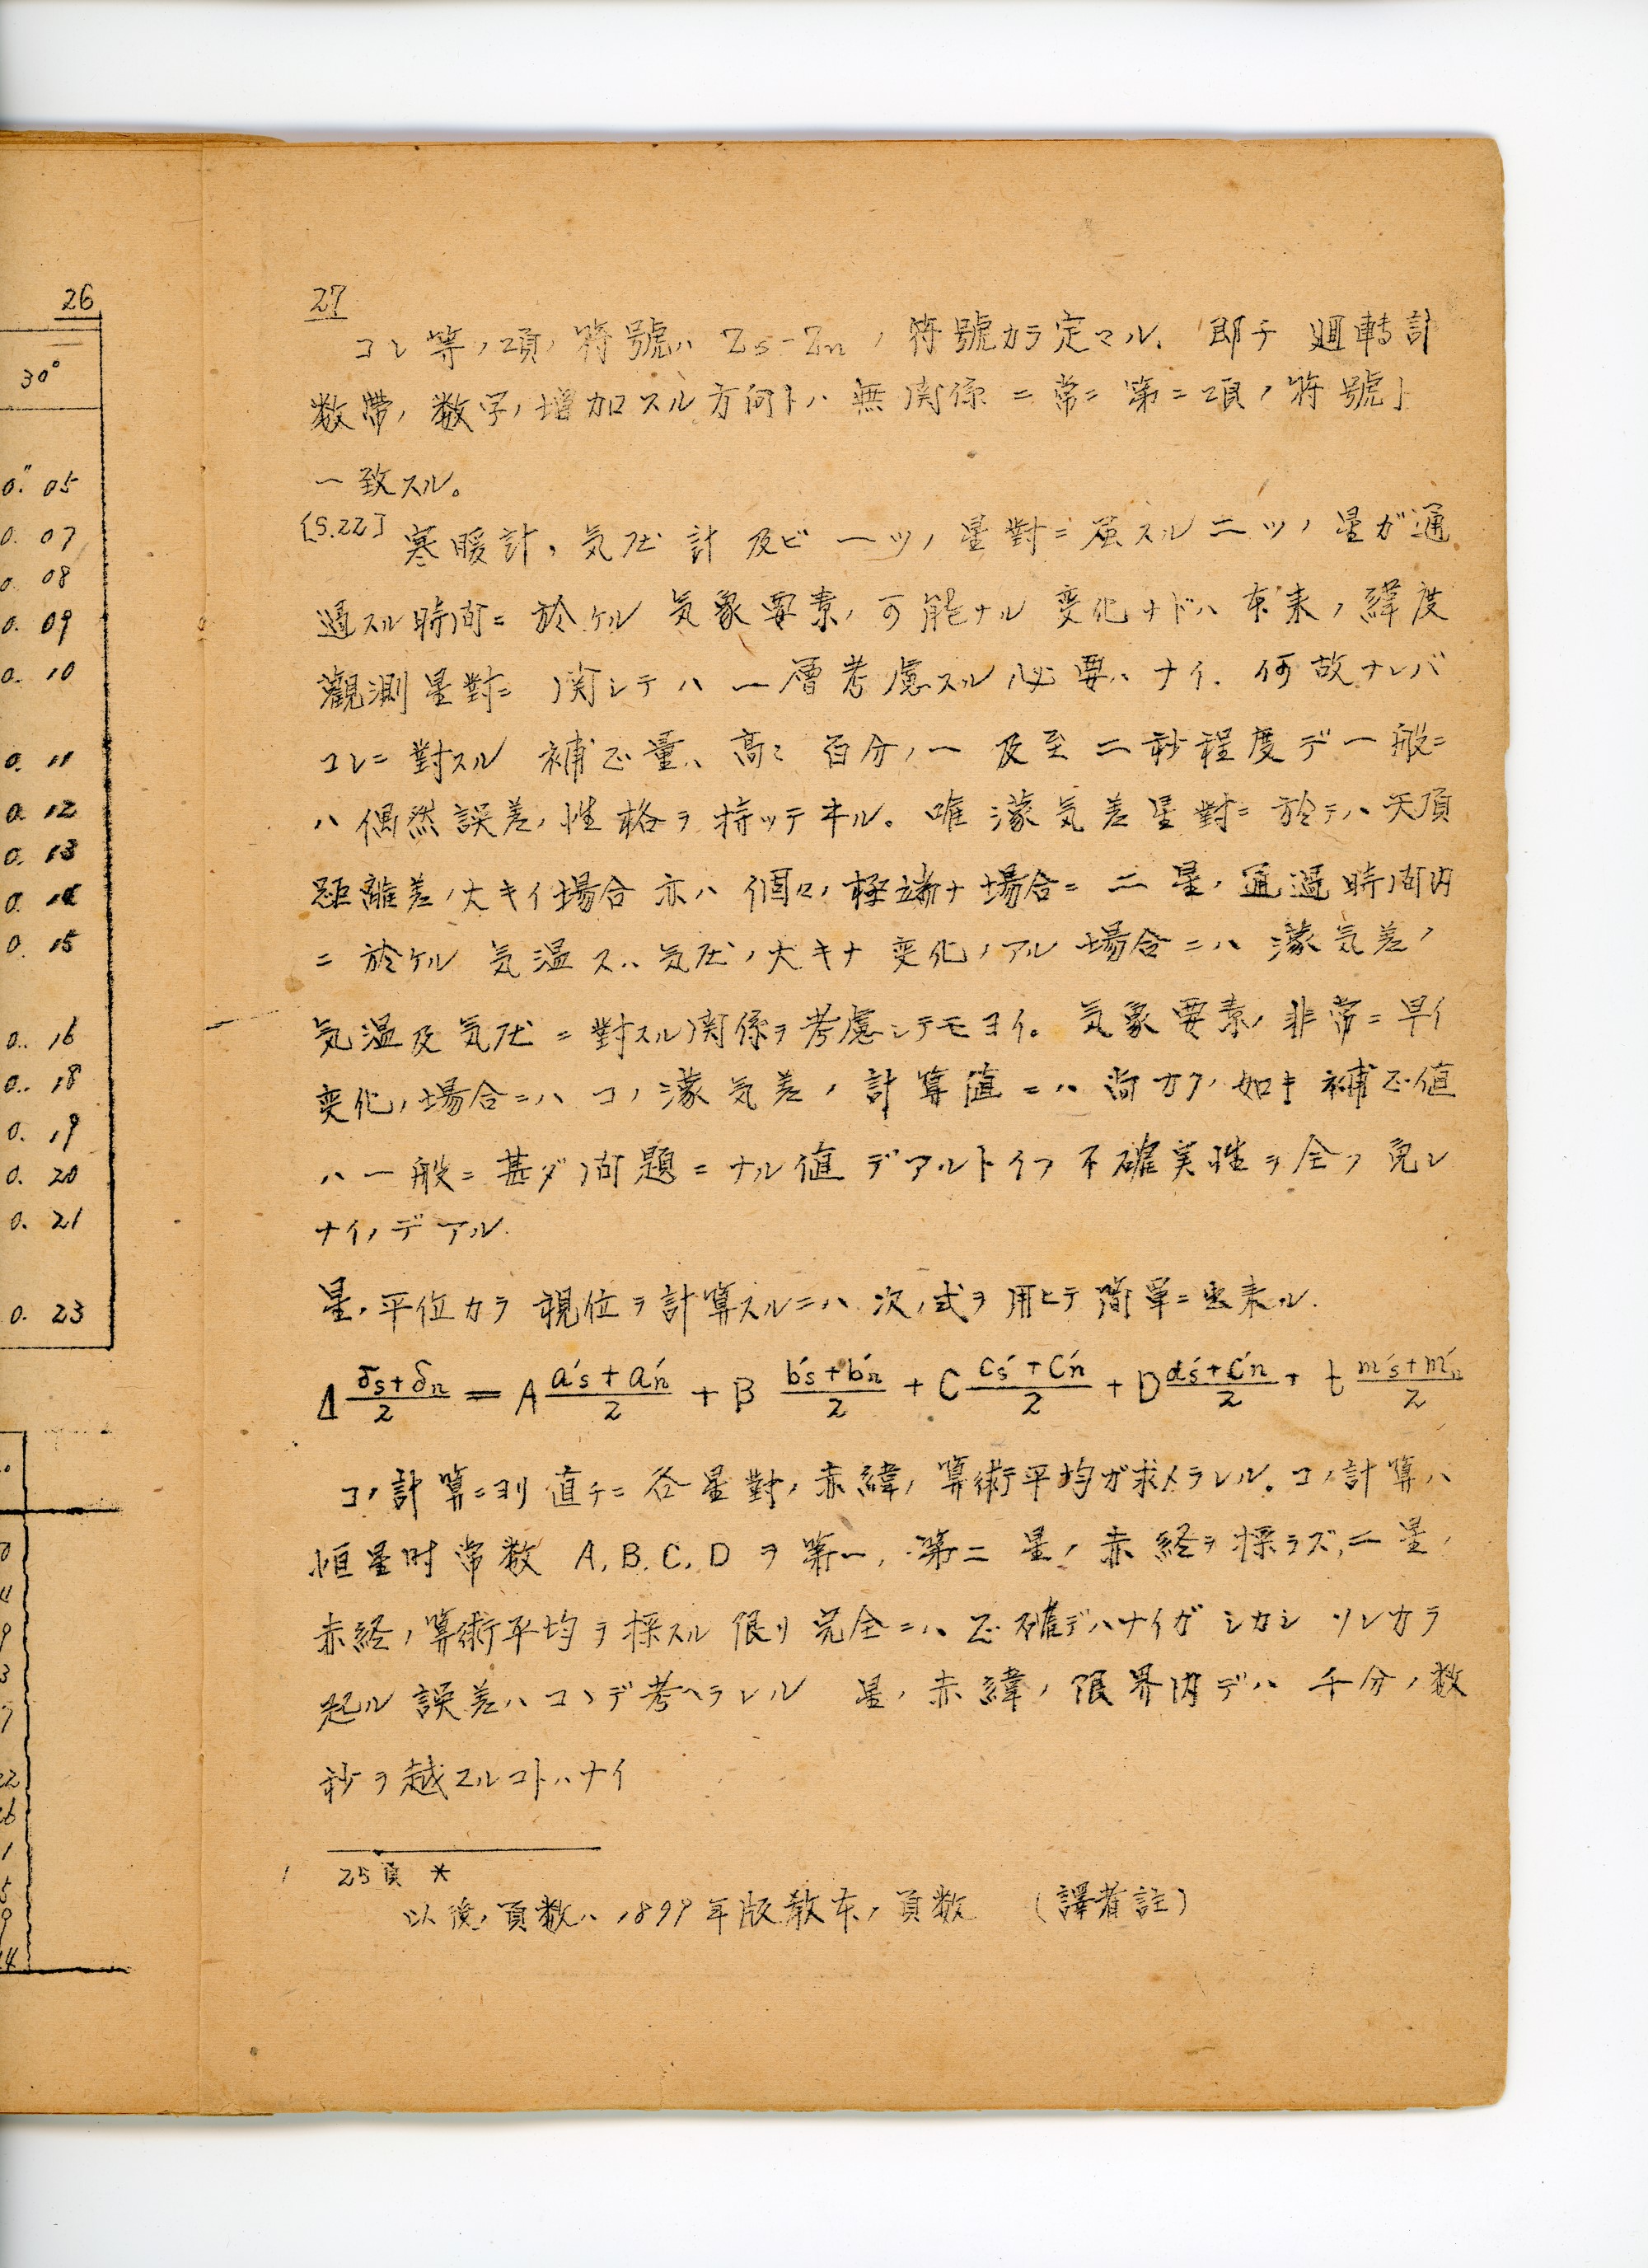 26
30°
0." 05
0. 07
0. 08
0. 09
0. 10
0. 11
0. 12
0. 13
0. 14
0. 15
0. 16
0. 18
0. 19
0. 20
0. 21
0. 23
27
コレ等ノ項ノ符號ハ Zs-Zn ノ符號カラ定マル. 即チ 廻轉計
数帯ノ数字ノ増加スル方向トハ無関係ニ常ニ第二項ノ符號ト
一致スル。
[S.22] 寒暖計, 気圧計及ビ一ツノ星對ニ属スル二ツノ星ガ通
過スル時間ニ於ケル気象要素ノ可能ナル変化ナドハ本来ノ緯度
觀測星對ニ関シテハ一層考慮スル必要ハナイ. 何故ナレバ
コレニ對スル補正量ハ高々百分ノ一及至二秒程度デ一般ニ
ハ偶然誤差ノ性格ヲ持ッテヰル。唯濛気差星對ニ於テハ天頂
距離差ノ大キイ場合亦ハ個々ノ極端ナ場合ニ二星ノ通過時間内
ニ於ケル気温又ハ気圧ノ大キナ変化ノアル場合ニハ濛気差ノ
気温及気圧ニ對スル関係ヲ考慮シテモヨイ。気象要素ノ非常ニ早イ
変化ノ場合ニハコノ濛気差ノ計算値ニハ尚カクノ如キ補正値
ハ一般ニ甚ダ問題ニナル値デアルトイフ不確実性ヲ全ク免レ
ナイノデアル.
星ノ平位カラ視位ヲ計算スルニハ次ノ式ヲ用ヒテ簡單ニ出来ル.
Δ (δs+δn)/2 = A (a's+a'n)/2 + B (b's+b'n)/2 + C (c's+c'n)/2 + D (d's+c'n)/2 + t (m's+m'n)/2
コノ計算ニヨリ直チニ各星對ノ赤緯ノ算術平均ガ求メラレル. コノ計算ハ
恒星时常数 A, B, C, D ヲ第一, 第二星ノ赤経ヲ採ラズ, 二星ノ
赤経ノ算術平均ヲ採スル限リ完全ニハ正確デハナイガシカシソレカラ
起ル誤差ハコヽデ考ヘラレル 星ノ赤緯ノ限界内デハ千分ノ数
秒ヲ越エルコトハナイ
25頁 *
以後ノ頁数ハ1899年版教本ノ頁数 (譯者註)